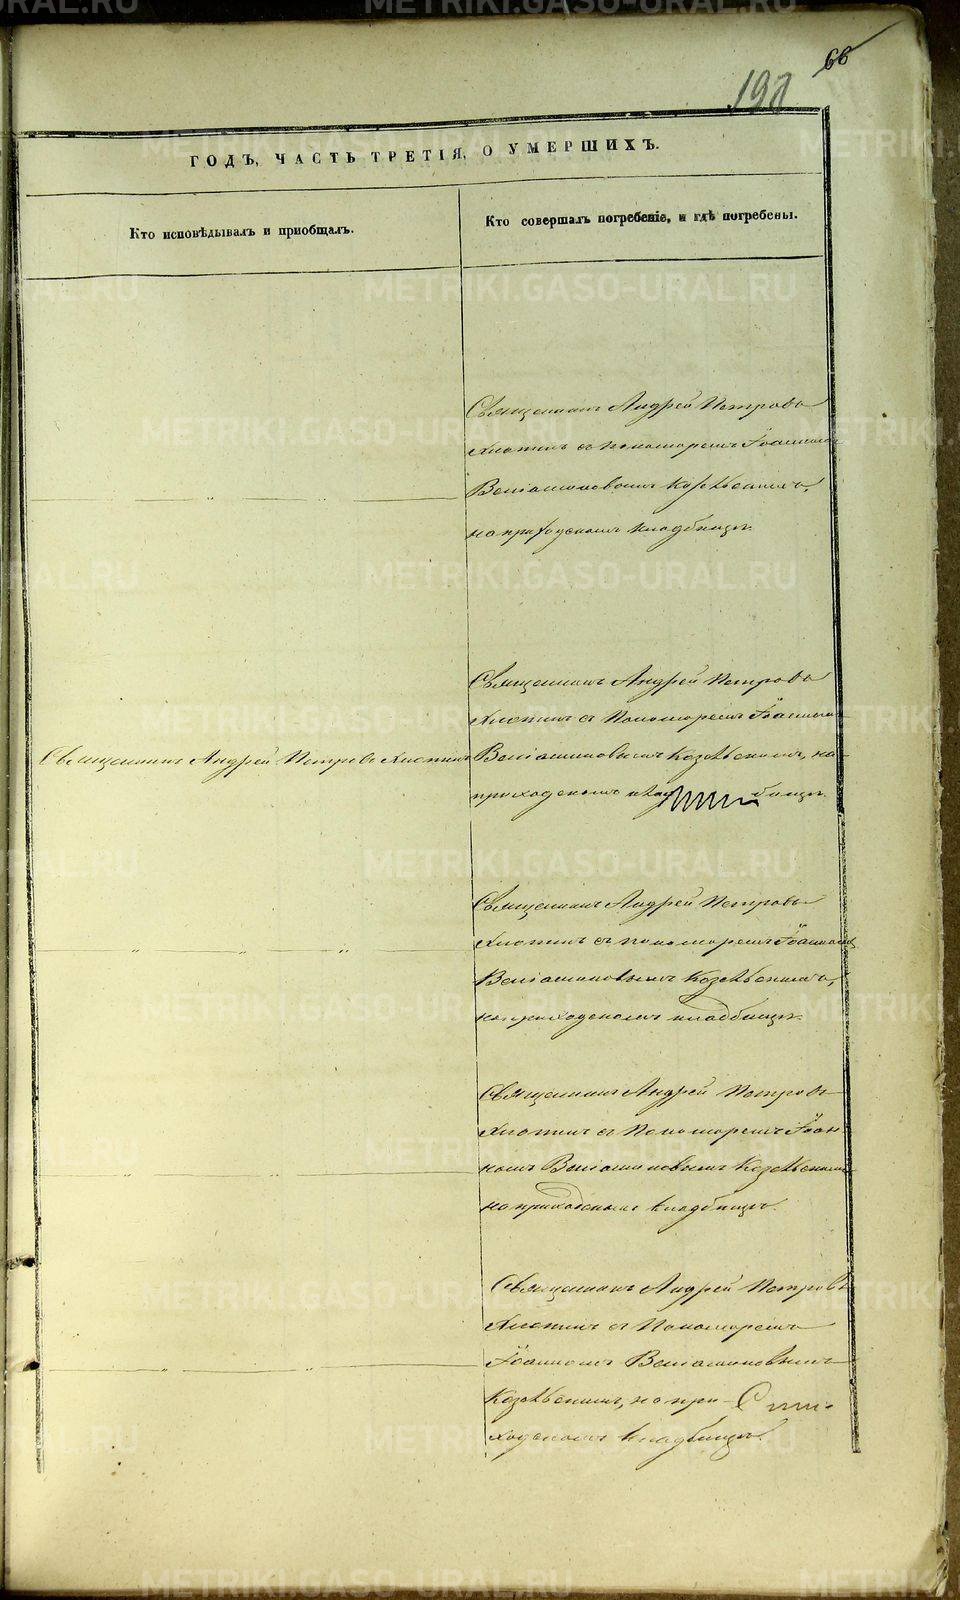 66
198
ГОДЪ, ЧАСТЬ ТРЕТІЯ, О УМЕРШИХЪ.
Кто исповѣдывалъ и пріобщалъ.
Кто совершалъ погребеніе, и гдѣ погребены.
Священникъ Андрей Петровъ
Хлотинъ съ Пономаремъ Іоанномъ
Веніаминовымъ Козѣльскимъ,
на приходскомъ кладбищѣ.
Священникъ Андрей Петровъ
Хлотинъ съ Пономаремъ Іоанномъ
Священникъ Андрей Петровъ Хлотинъ
Веніаминовымъ Козѣльскимъ, на
приходскомъ клад бищѣ.
Священникъ Андрей Петровъ
Хлотинъ съ пономаремъ Іоанномъ
Веніаминовымъ Козѣльскимъ,
на приходскомъ кладбищѣ.
Священникъ Андрей Петровъ
Хлотинъ съ Пономаремъ Іоан-
номъ Веніаминовымъ Козѣльскимъ
на приходскомъ кладбищѣ.
Священникъ Андрей Петровъ
Хлотинъ съ Пономаремъ
Іоанномъ Веніаминовымъ
Козѣльскимъ, на при-
ходскомъ кладбищѣ.
METRIKI.GASO-URAL.RU